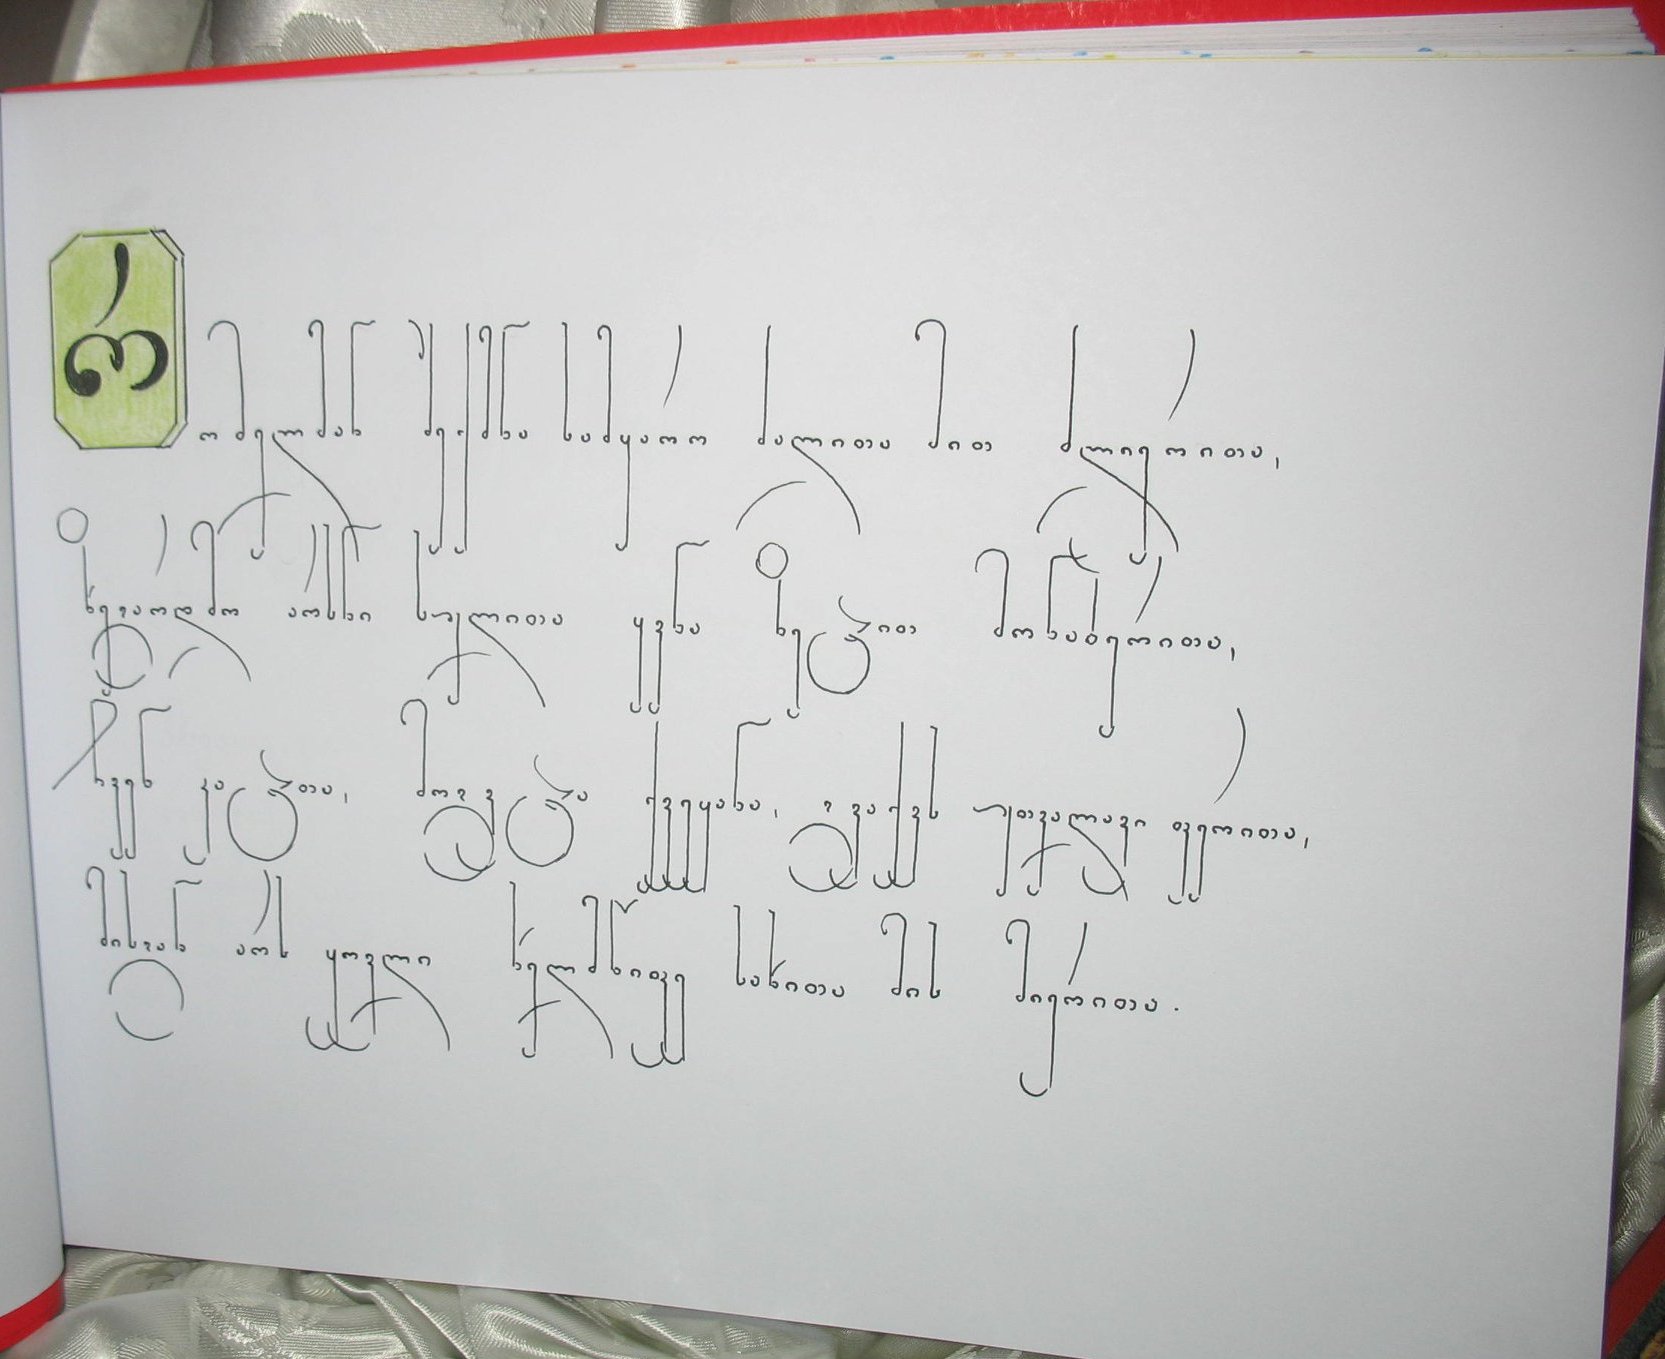 რომელმან შექმნა სამყარო ძალითა მით ძლიერითა,
ზეგარდმო არსნი სულითა ყვნა ზეცით მონაბერითა,
ჩვენ კაცთა, მოგვცა ქვეყანა, გვაქვს უთვალავი ფერითა,
მისგან არს ყოვლი ხელმწიფე სახითა მის მიერითა.